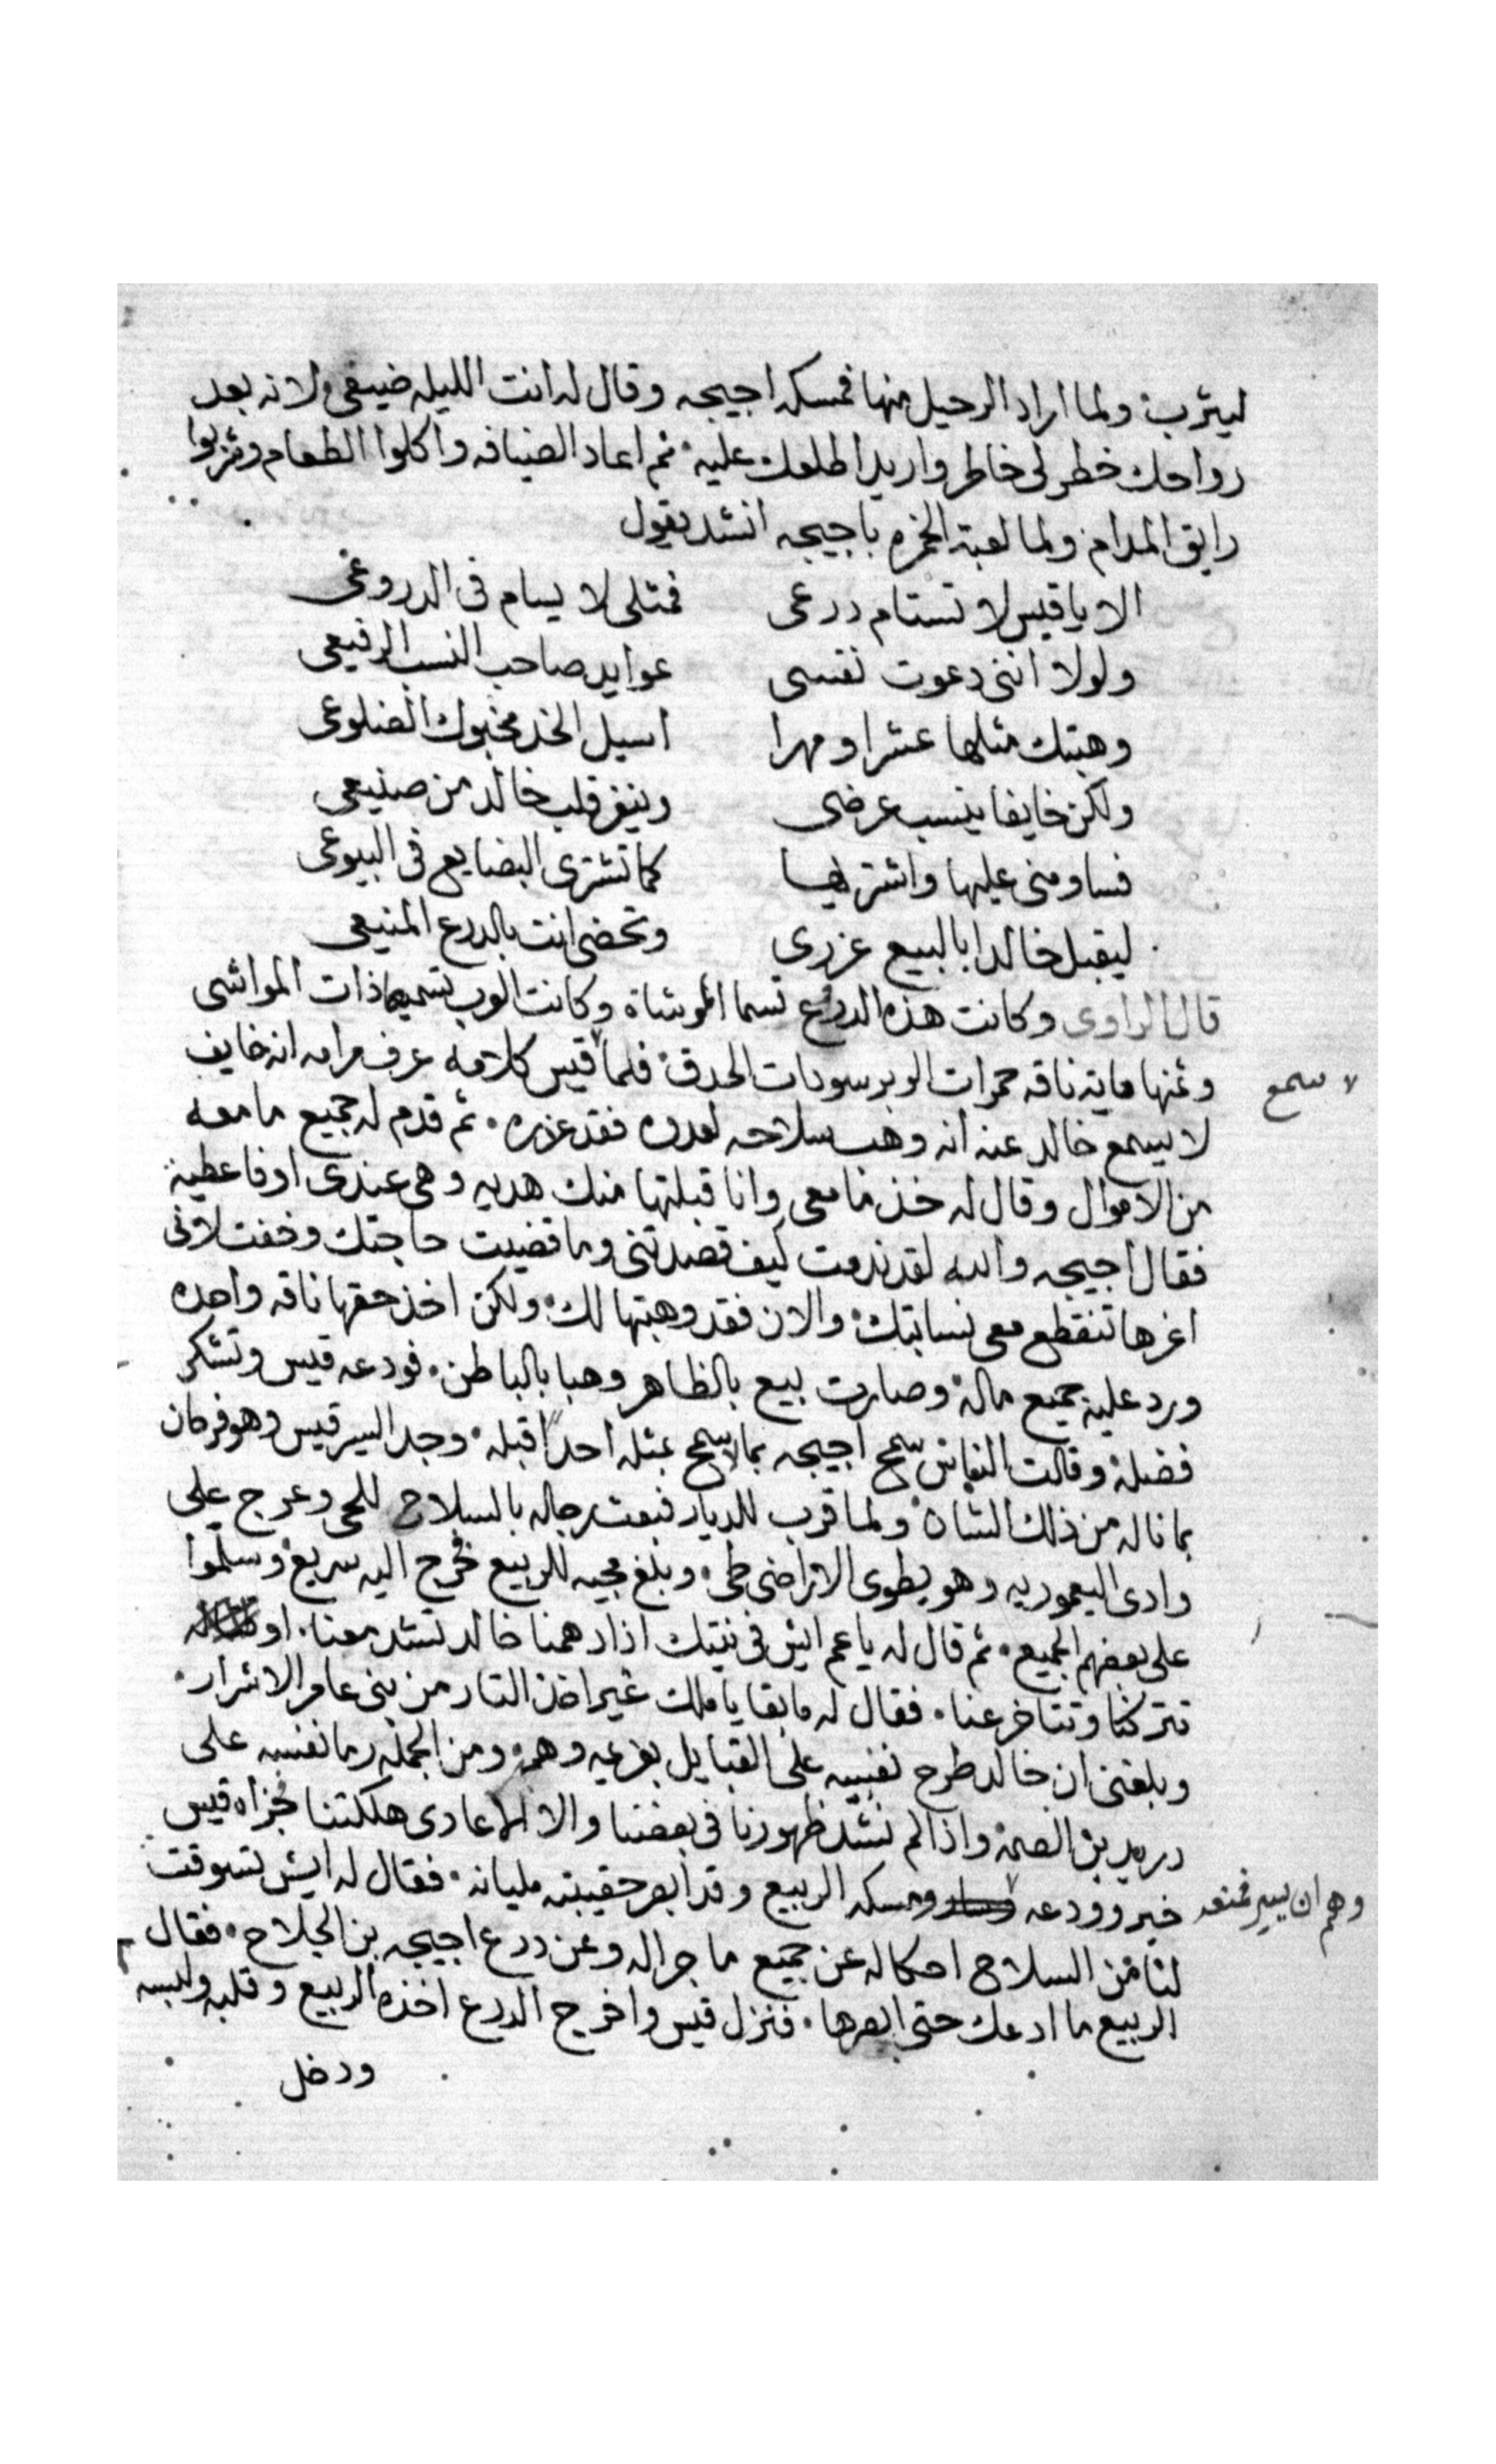 ليثرب ولما اراد الرحيل منها فمسكه اجيحه وقال له انت الليله ضيفي لانه بعد
رواحك خطر لي خاطر واريد اطلعك عليه ثم اعاد الضيافه واكلوا الطعام وشربوا
رايق المدام ولما لعبة الخمره باجيحه انشد يقول
الا يا قيس لا تستام درعى فمثلى لا يسام فى الدروعى
ولولا اننى دعوت نفسى عوايد صاحب النسب الرفيعى
وهبتك مثلها عشرا ومهرا اسيل الخد مخبوك الضلوعى
ولكن خايفا ينسب عرضى وينفر قلب خالد من صنيعى
فساومنى عليها واشتريها كما تشترى البضايع فى البيوعى
ليقبل خالدا بالبيع عزرى وتحضى انت بالدرع المنيعى
قال الراوى وكانت هذه الدرع تسما الموشاة وكانت العرب تسميها ذات المواشى
وثمنها ماية ناقه حمرات الوبر سودات الحدق فلما قيس كلامه عرف مرامه انه خايف
سمع
لا يسمع خالد عنه انه وهب سلاحه لعدوه فقد عزره ثم قدم له جميع ما معه
من الاموال وقال له خذ ما معى وانا قبلتها منك هديه وهى عندى اوفا عطية
فقال اجيحه والله لقد ندمت كيف قصدتنى وما قضيت حاجتك وخفت لانى
اغرها تنقطع معى نسابتك والان فقد وهبتها لك ولكن اخذ حقها ناقه واحده
ورد عليه جميع ماله وصارت بيع بالظاهر وهبا بالباطن فودعه قيس وتشكر
فضله وقالت الناس سمح اجيحه بما لا سمح بمثله احدًا قبله وجد السير قيس وهو فرحان
بما ناله من ذلك الشان ولما قرب للديار فبعت رجاله بالسلاح للحى وعرج على
وادى اليعموريه وهو يطوى الاراضى طى وبلغ مجيه للربيع فخرج اليه سريع وسلموا
على بعضهم الجميع ثم قال له يا عم ايش فى نيتك اذا دهمنا خالد تشد معنا او
تتركنا وتتاخر عنا فقال له ما بقا يا ملك غير اخذ التار من بنى عامر الاشرار
وبلغنى ان خالد طرح نفسه على القبايل بفزعيه وهمه ومن الجمله رما نفسه على
دريد بن الصمة واذا لم نشد ظهورنا فى بعضنا والا الاعادى هلكتنا فجزاه قيس
خير وودعه ومسكه الربيع وقد ابصر حقيبته مليانه فقال له ايش تسوقت
وهم ان يسير فمنعه
لنا من السلاح احكاله عن جميع ما جراله وعن درع اجيحه بن الجلاح فقال
الربيع ما ادعك حتى ابصرها فنزل قيس واخرج الدرع اخذه الربيع وقلبه ولبسه
ودخل